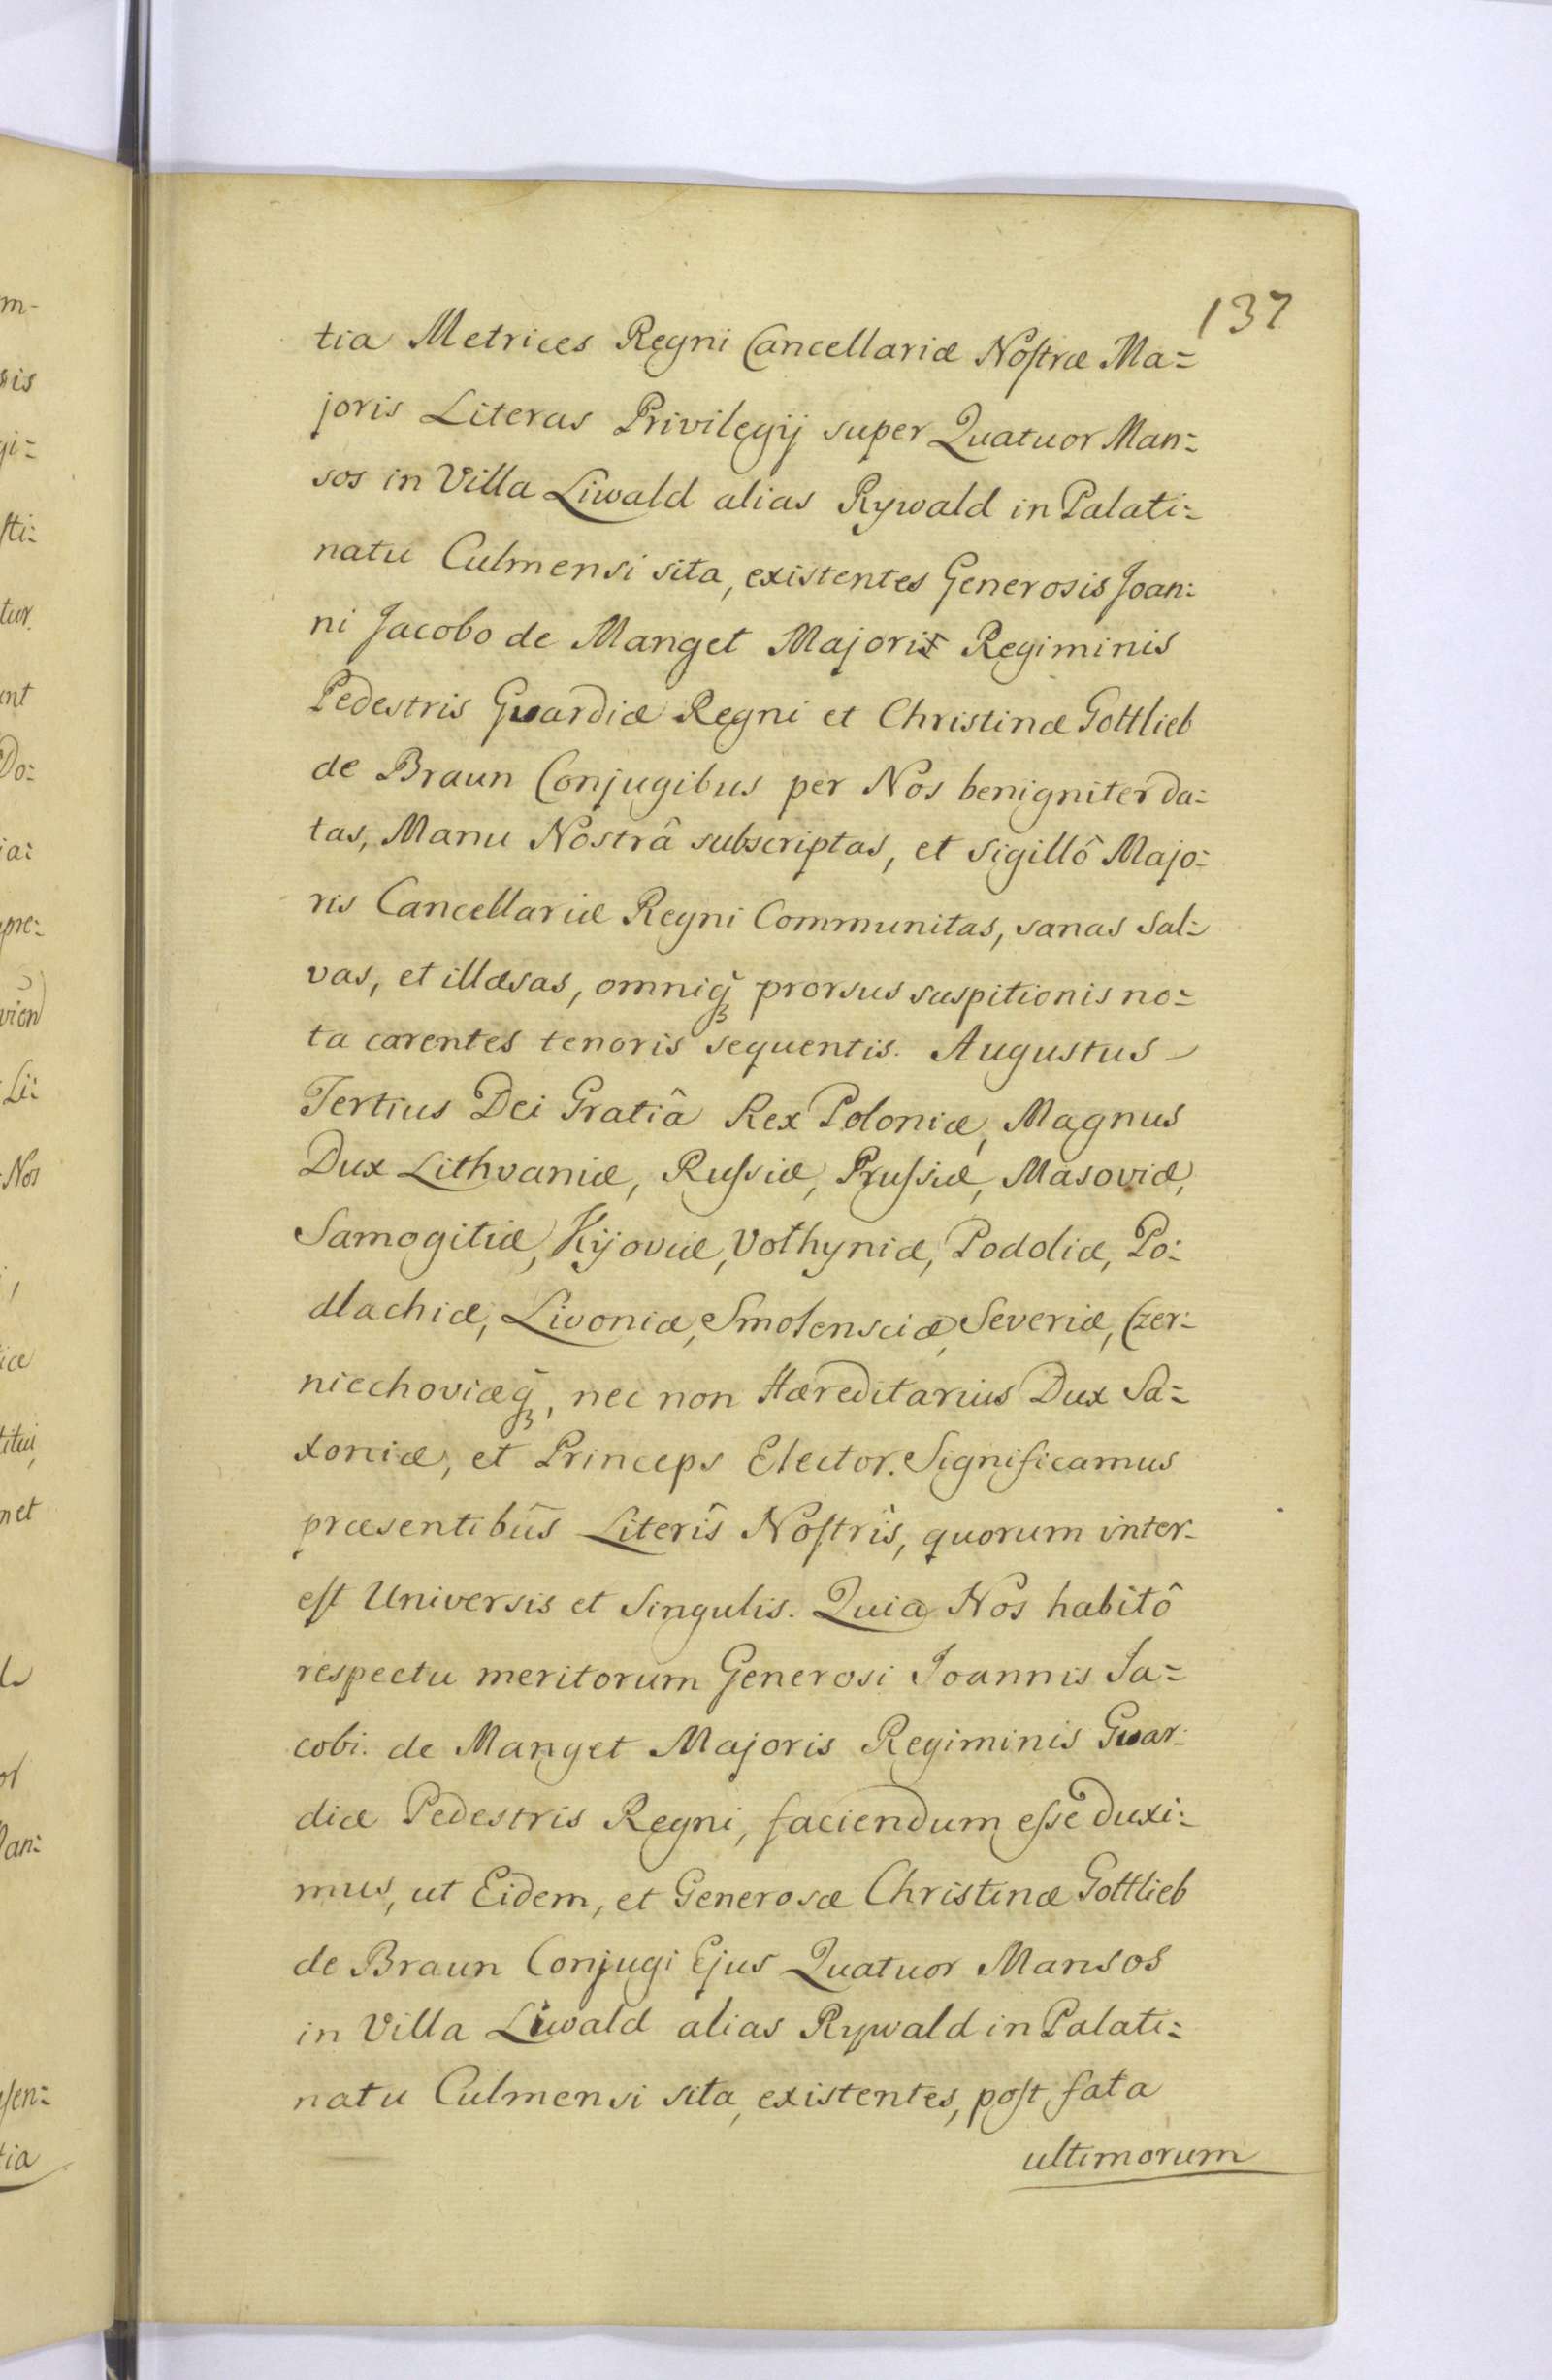 137
tia Metrices Regni Cancellariæ Noſtræ Ma=
joris Literas Privilegij super Quatuor Man=
sos in Villa Liwald alias Rywald in Palati=
natu Culmensi sita, existentes Generosis Joan=
ni Jacobo de Manget Majori Regiminis
Pedestris Gwardiæ Regni et Christinæ Gottlieb
de Braun Conjugibus per Nos benigniter da=
tas, Manu Nostrâ subscriptas, et Sigillô Majo=
ris Cancellariæ Regni Communitas, sanas Sal=
vas, et illæsas, omniq̃ꝫ prorsus suspitionis no=
ta carentes tenoris sequentis. Augustus
Tertius Dei Gratiâ Rex Poloniæ, Magnus
Dux Lithvaniæ, Ruſsiæ, Pruſsiæ, Masoviæ,
Samogitiæ, Kijoviæ, Volhyniæ, Podoliæ, Po=
dlachiæ, Livoniæ, Smolensciæ, Severiæ, Czer=
niechoviæq̃ꝫ, nec non Hæreditarius Dux Sa=
xoniæ, et Princeps Elector. Significamus
præsentibûs Literîs Noſtrîs, quorum inter=
eſt Universis et Singulis. Quia Nos habitô
respectu meritorum Generosi Joannis Ja=
cobi de Manget Majoris Regiminis Gwar=
diæ Pedestris Regni, faciendum eſse duxi=
mus, ut Eidem, et Generosæ Christinæ Gottlieb
de Braun Conjugi Ejus Quatuor Mansos
in Villa Liwald alias Rywald in Palati=
natu Culmensi sita, existentes, poſt fata
ultimorum
m-
sis
gi=
ſti=
tur
ent
Do=
ia=
pre=
vion
Li=
Nos
iæ
titui
net
an=
ſen=
tia